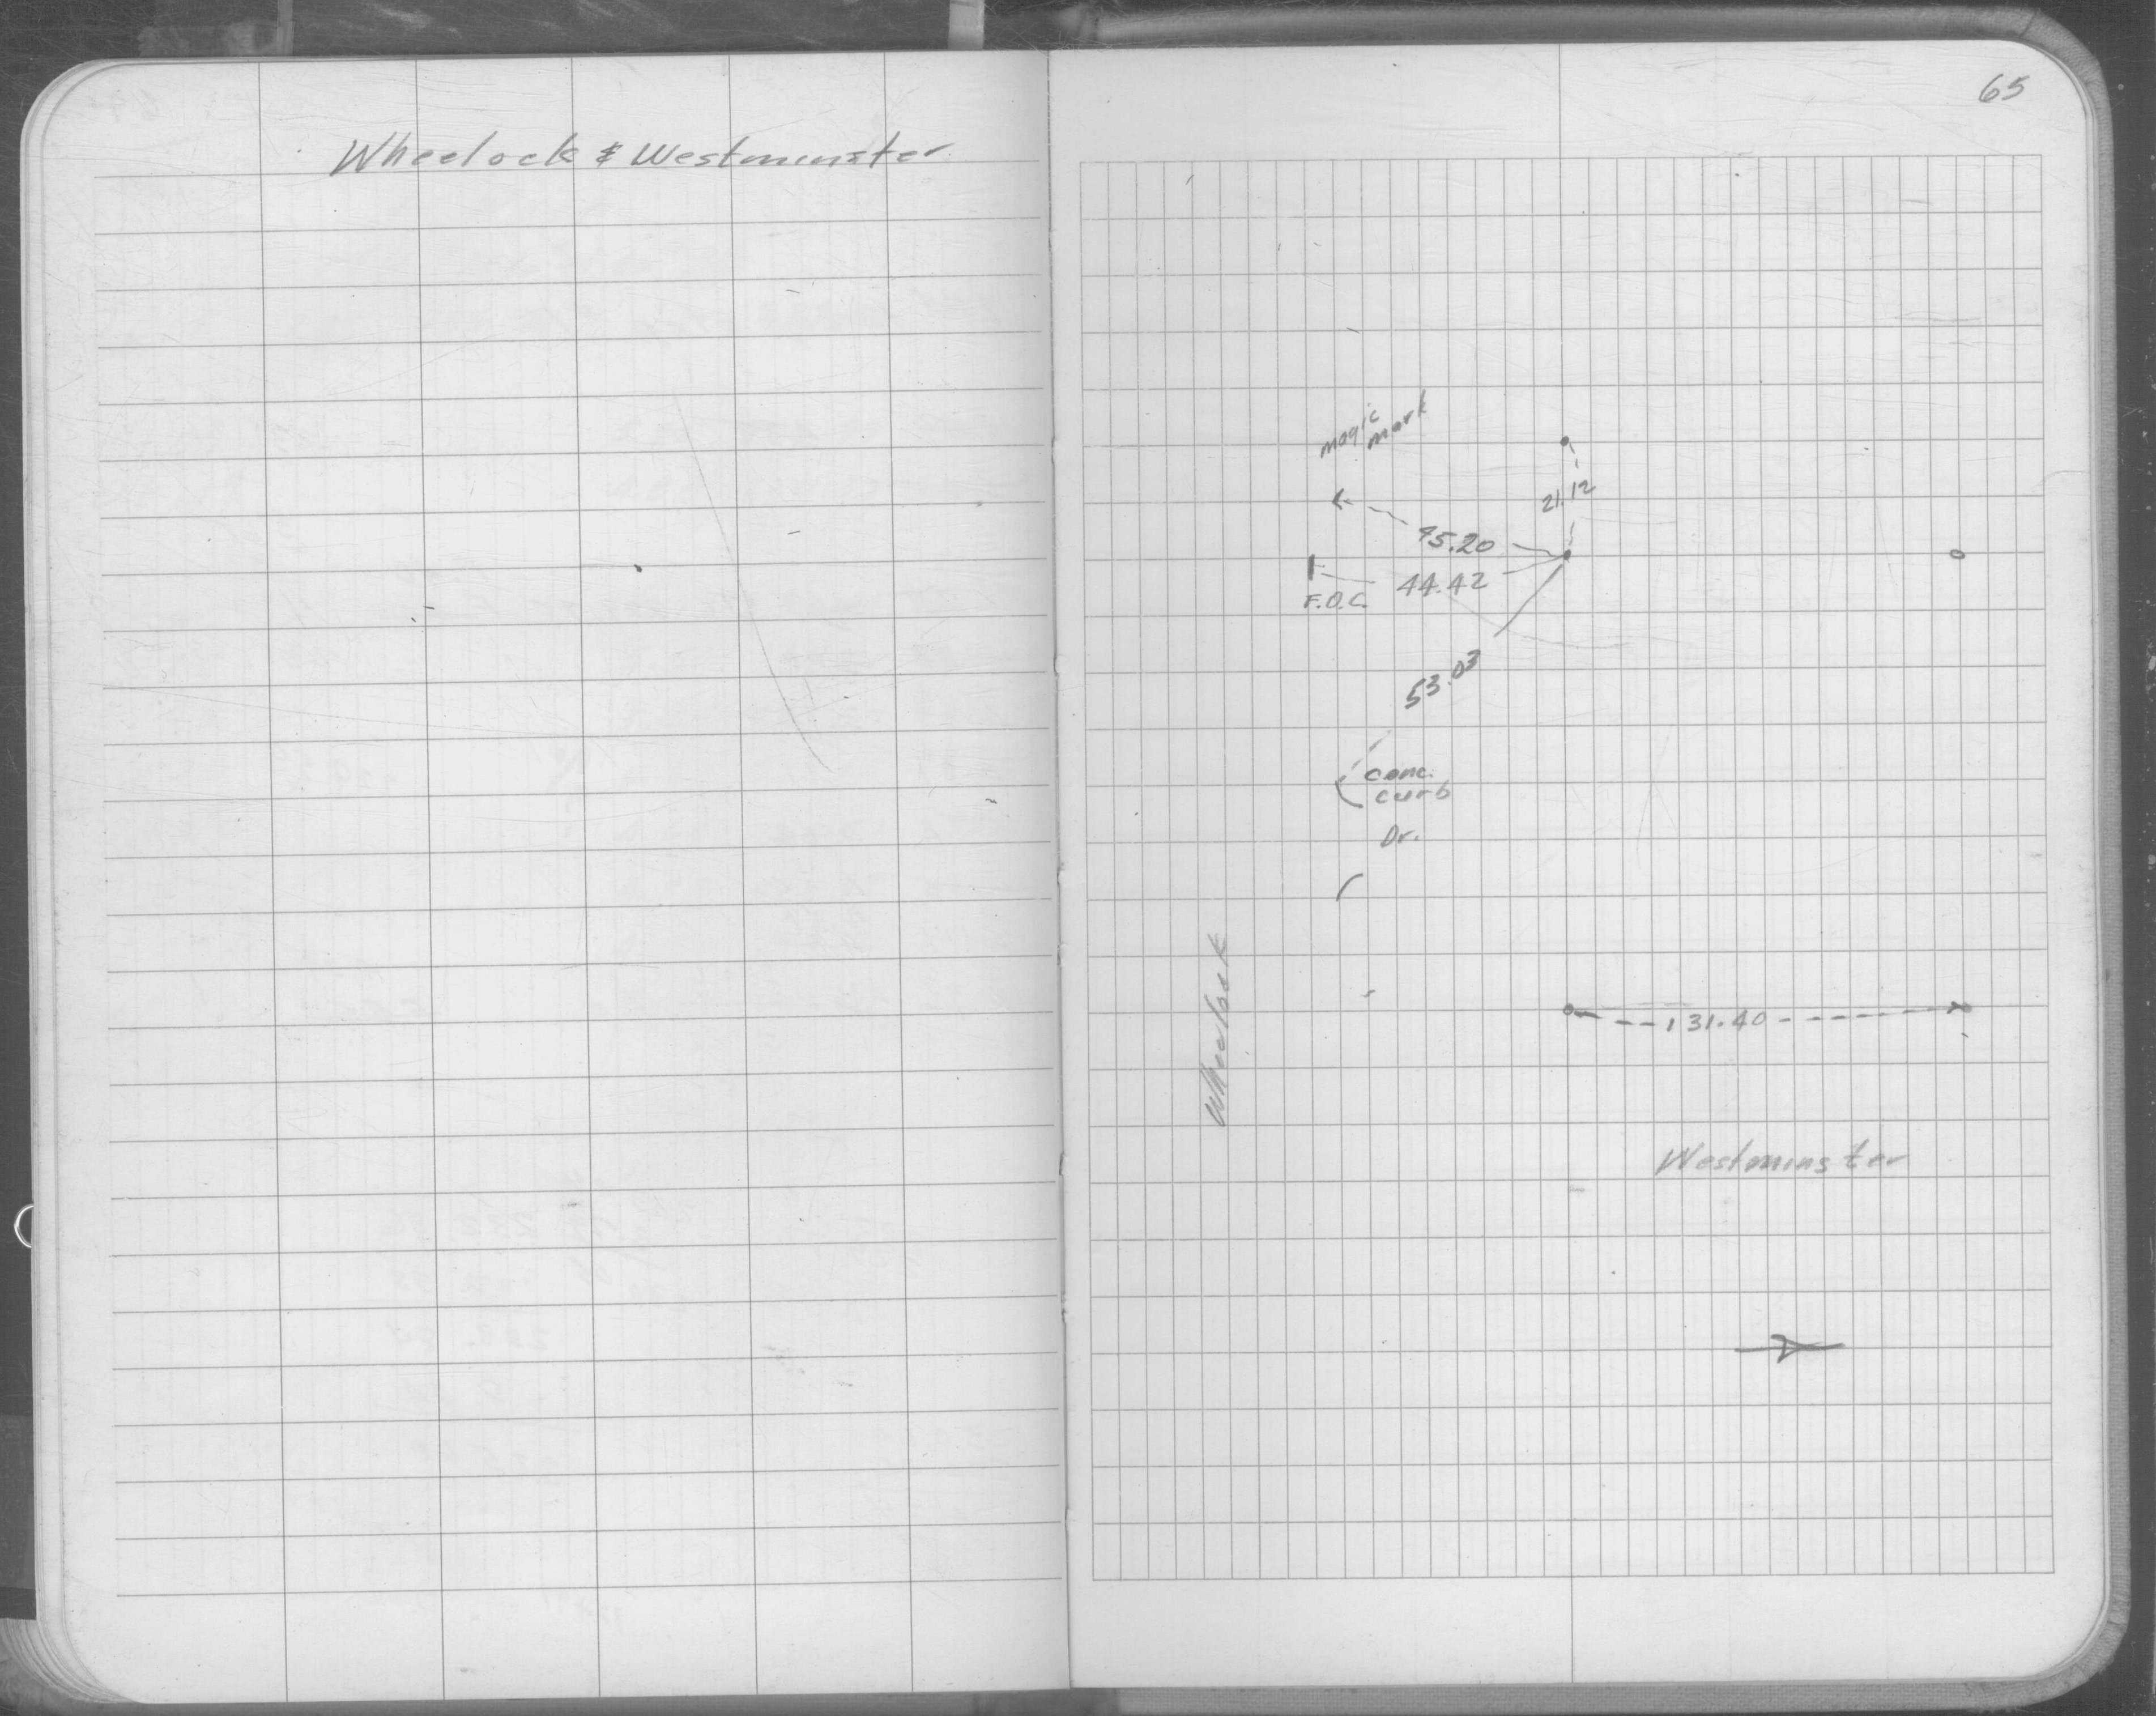 Wheelock & Westminster
65
magic
mark
21.12
45.20
44.42
F.O.C.
53.03
conc.
curb
Dr.
Wheelock
131.40
Westminster